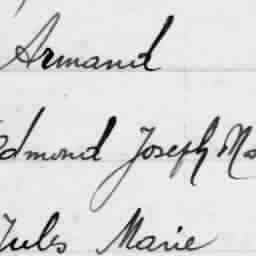 Armand
Edmond Joseph Ma
Jules Marie